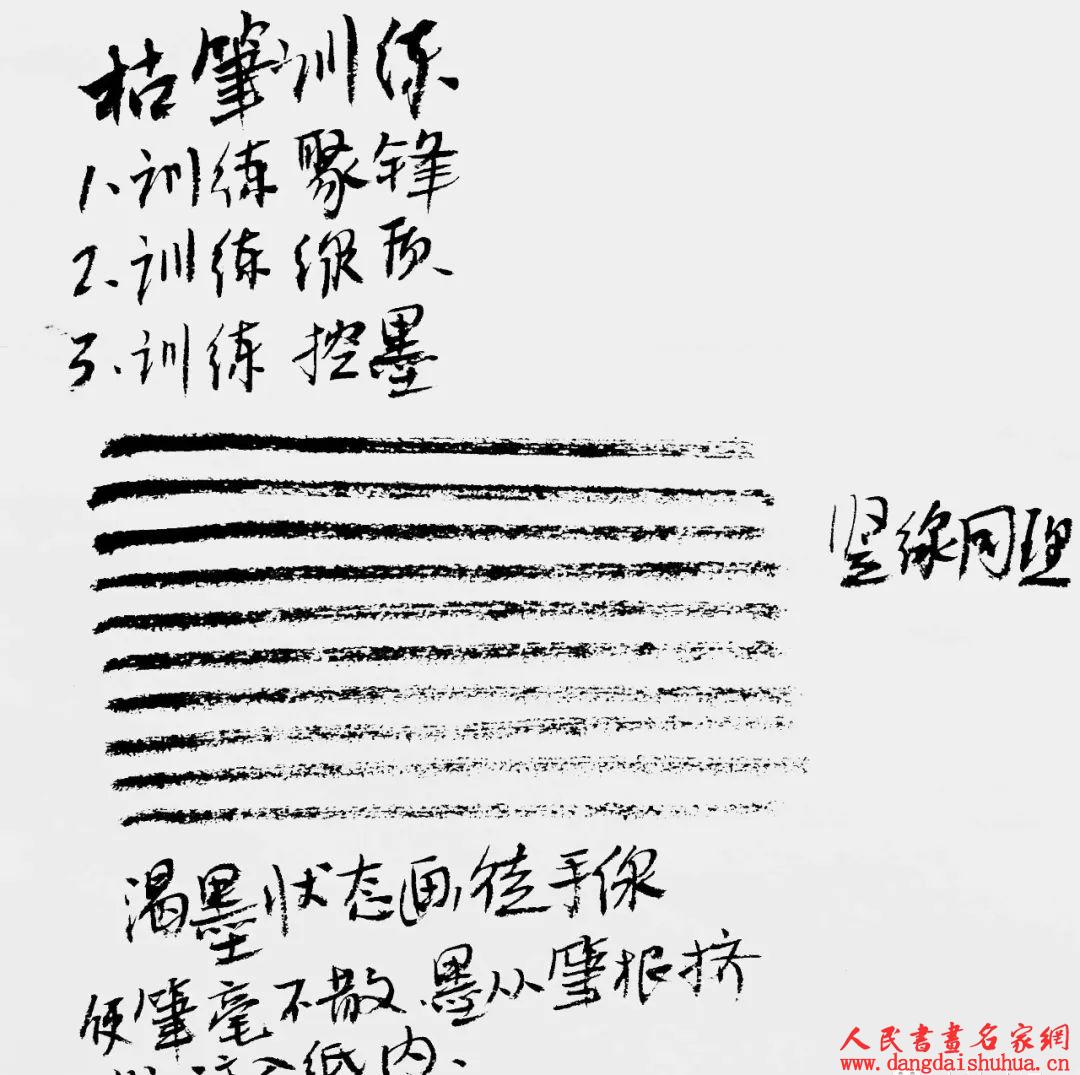 枯筆训练
1、训练聚锋
2、训练线质
3、训练控墨
竖线同理
渴墨状态画徒手线
使筆毫不散、墨从筆根挤
入纸内、
人民書畫名家網
www.dangdaishuhua.cn